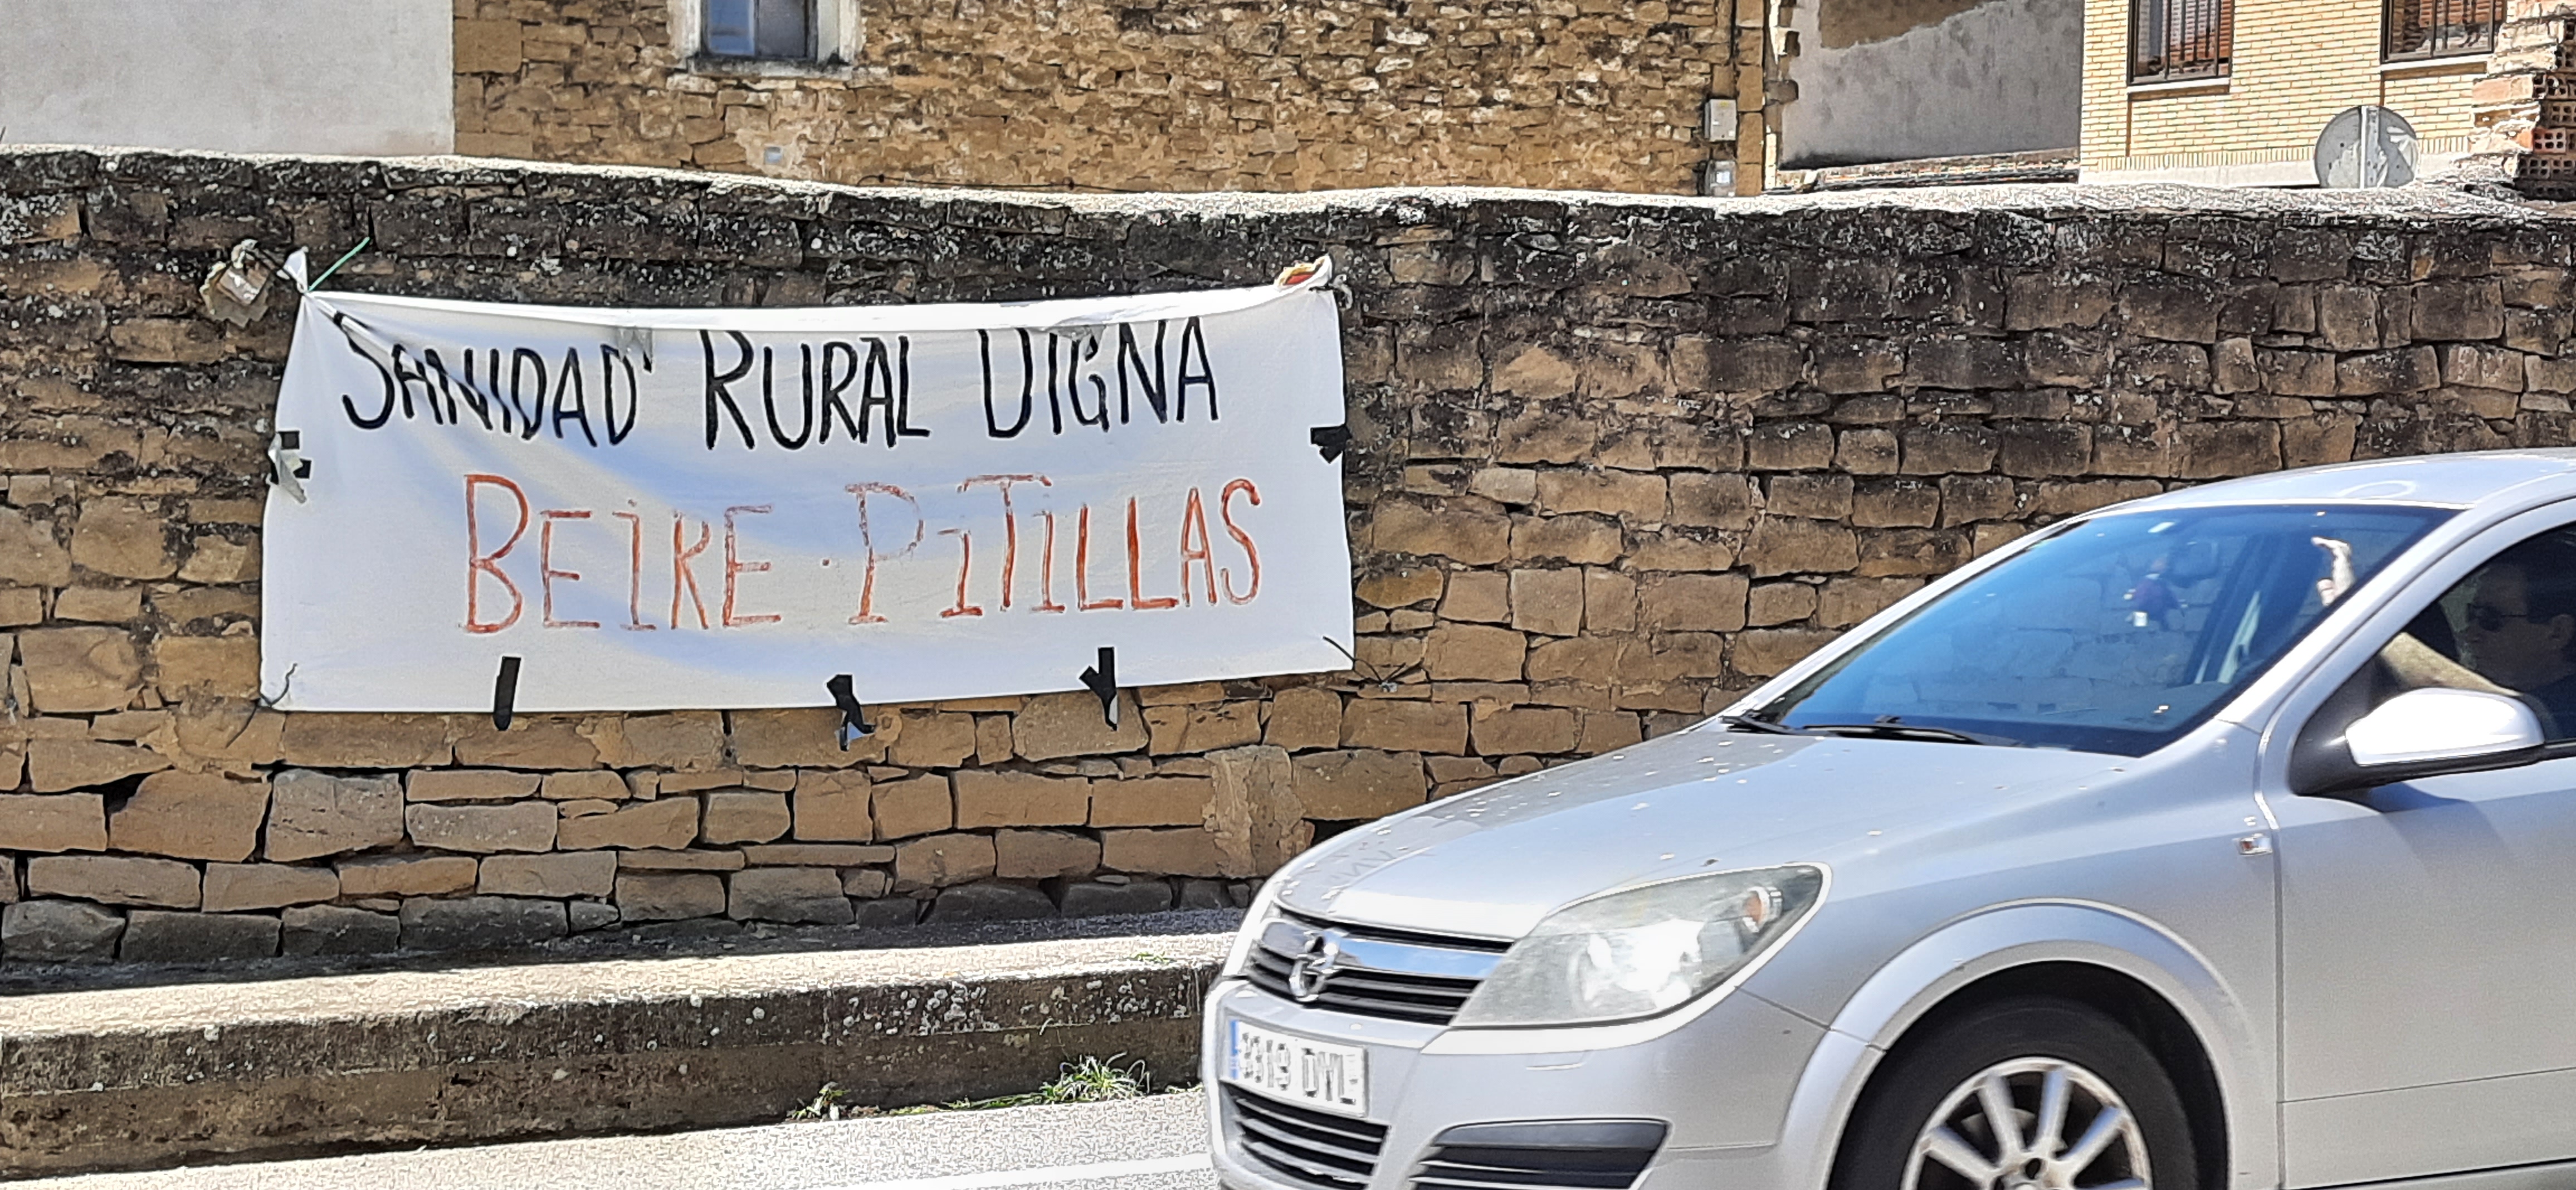 SANIDAD RURAL DIGNA
BEIRE · PITILLAS